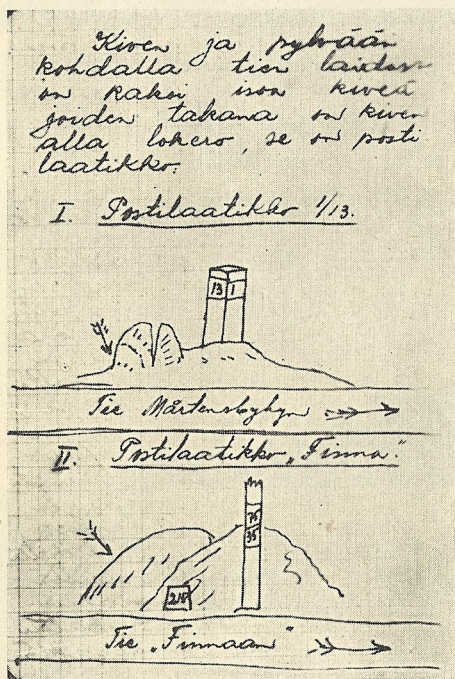 Kiven ja pylvään
kohdalla tien laidassa
on kaksi ison kiveä
joiden takana on kiven
alla lokero, se on posti
laatikko.
I. Postilaatikko 1/13.
13 1
Tie Mårtensbyhyn
II. Postilaatikko „Finna”.
75
35
215
Tie „Finnaan”